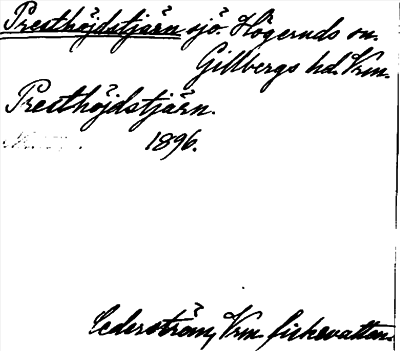 Presthöjdstjärn sjö Högeruds sn.
Gillbergs hd. Vrm.
Presthöjdstjärn.
1896.
Cederström, Vrm. fiskevatten.